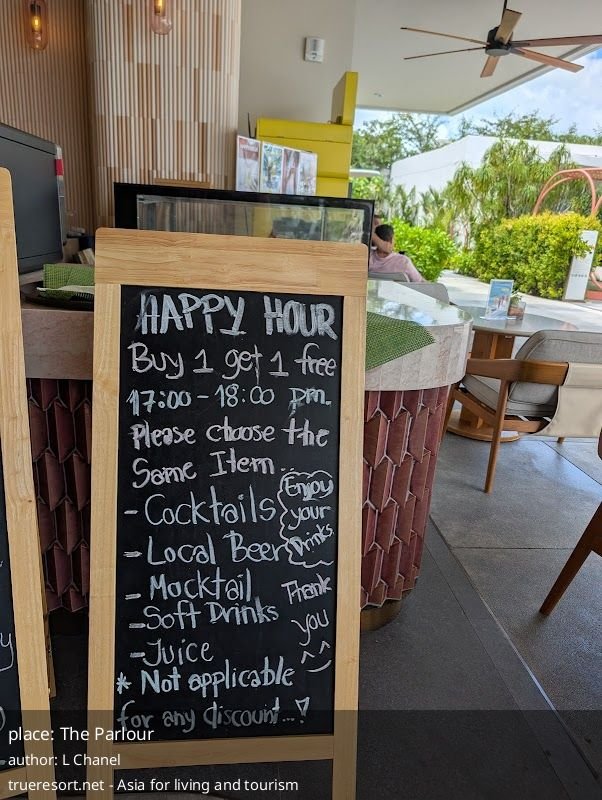 HAPPY HOUR
Buy 1 get 1 free
17:00 - 18:00 pm.
Please choose the
Same Item...
- Cocktails
Enjoy
your
Drinks.
- Local Beer
- Mocktail
- Soft Drinks
- Juice
Thank
you
* Not applicable
for any discount...!
place: The Parlour
author: L Chanel
trueresort.net - Asia for living and tourism